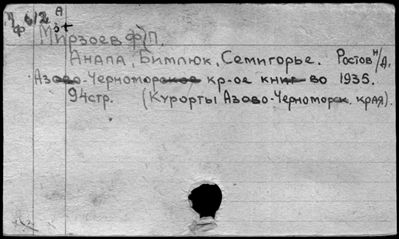 Мирзоев Ф.П.
Анапа, Бимлюк, Семигорье. Ростов н/Д.
Азово-Черноморское кр-ое книг-во 1935.
94стр. (Курорты Азово-Черноморск. края).